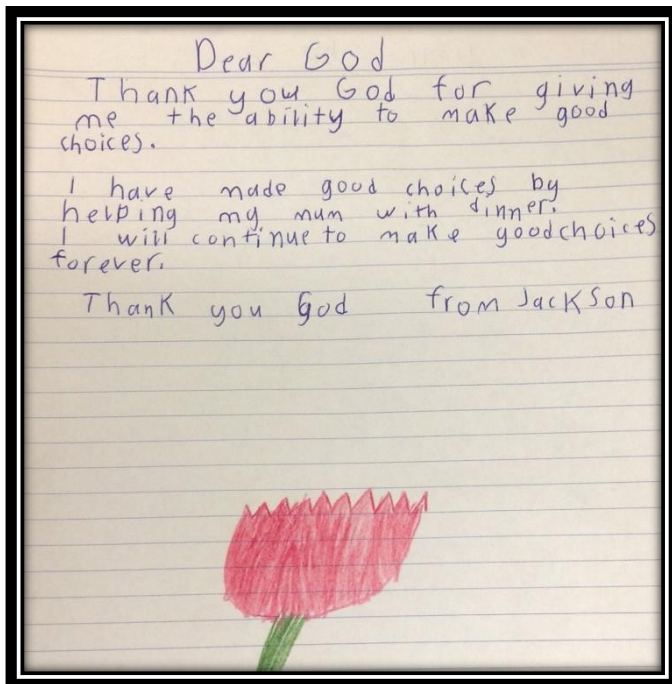 Dear God
Thank you God for giving
me the ability to make good
choices.
I have made good choices by
helping my mum with dinner.
I will continue to make good choices
forever.
Thank you God from Jackson